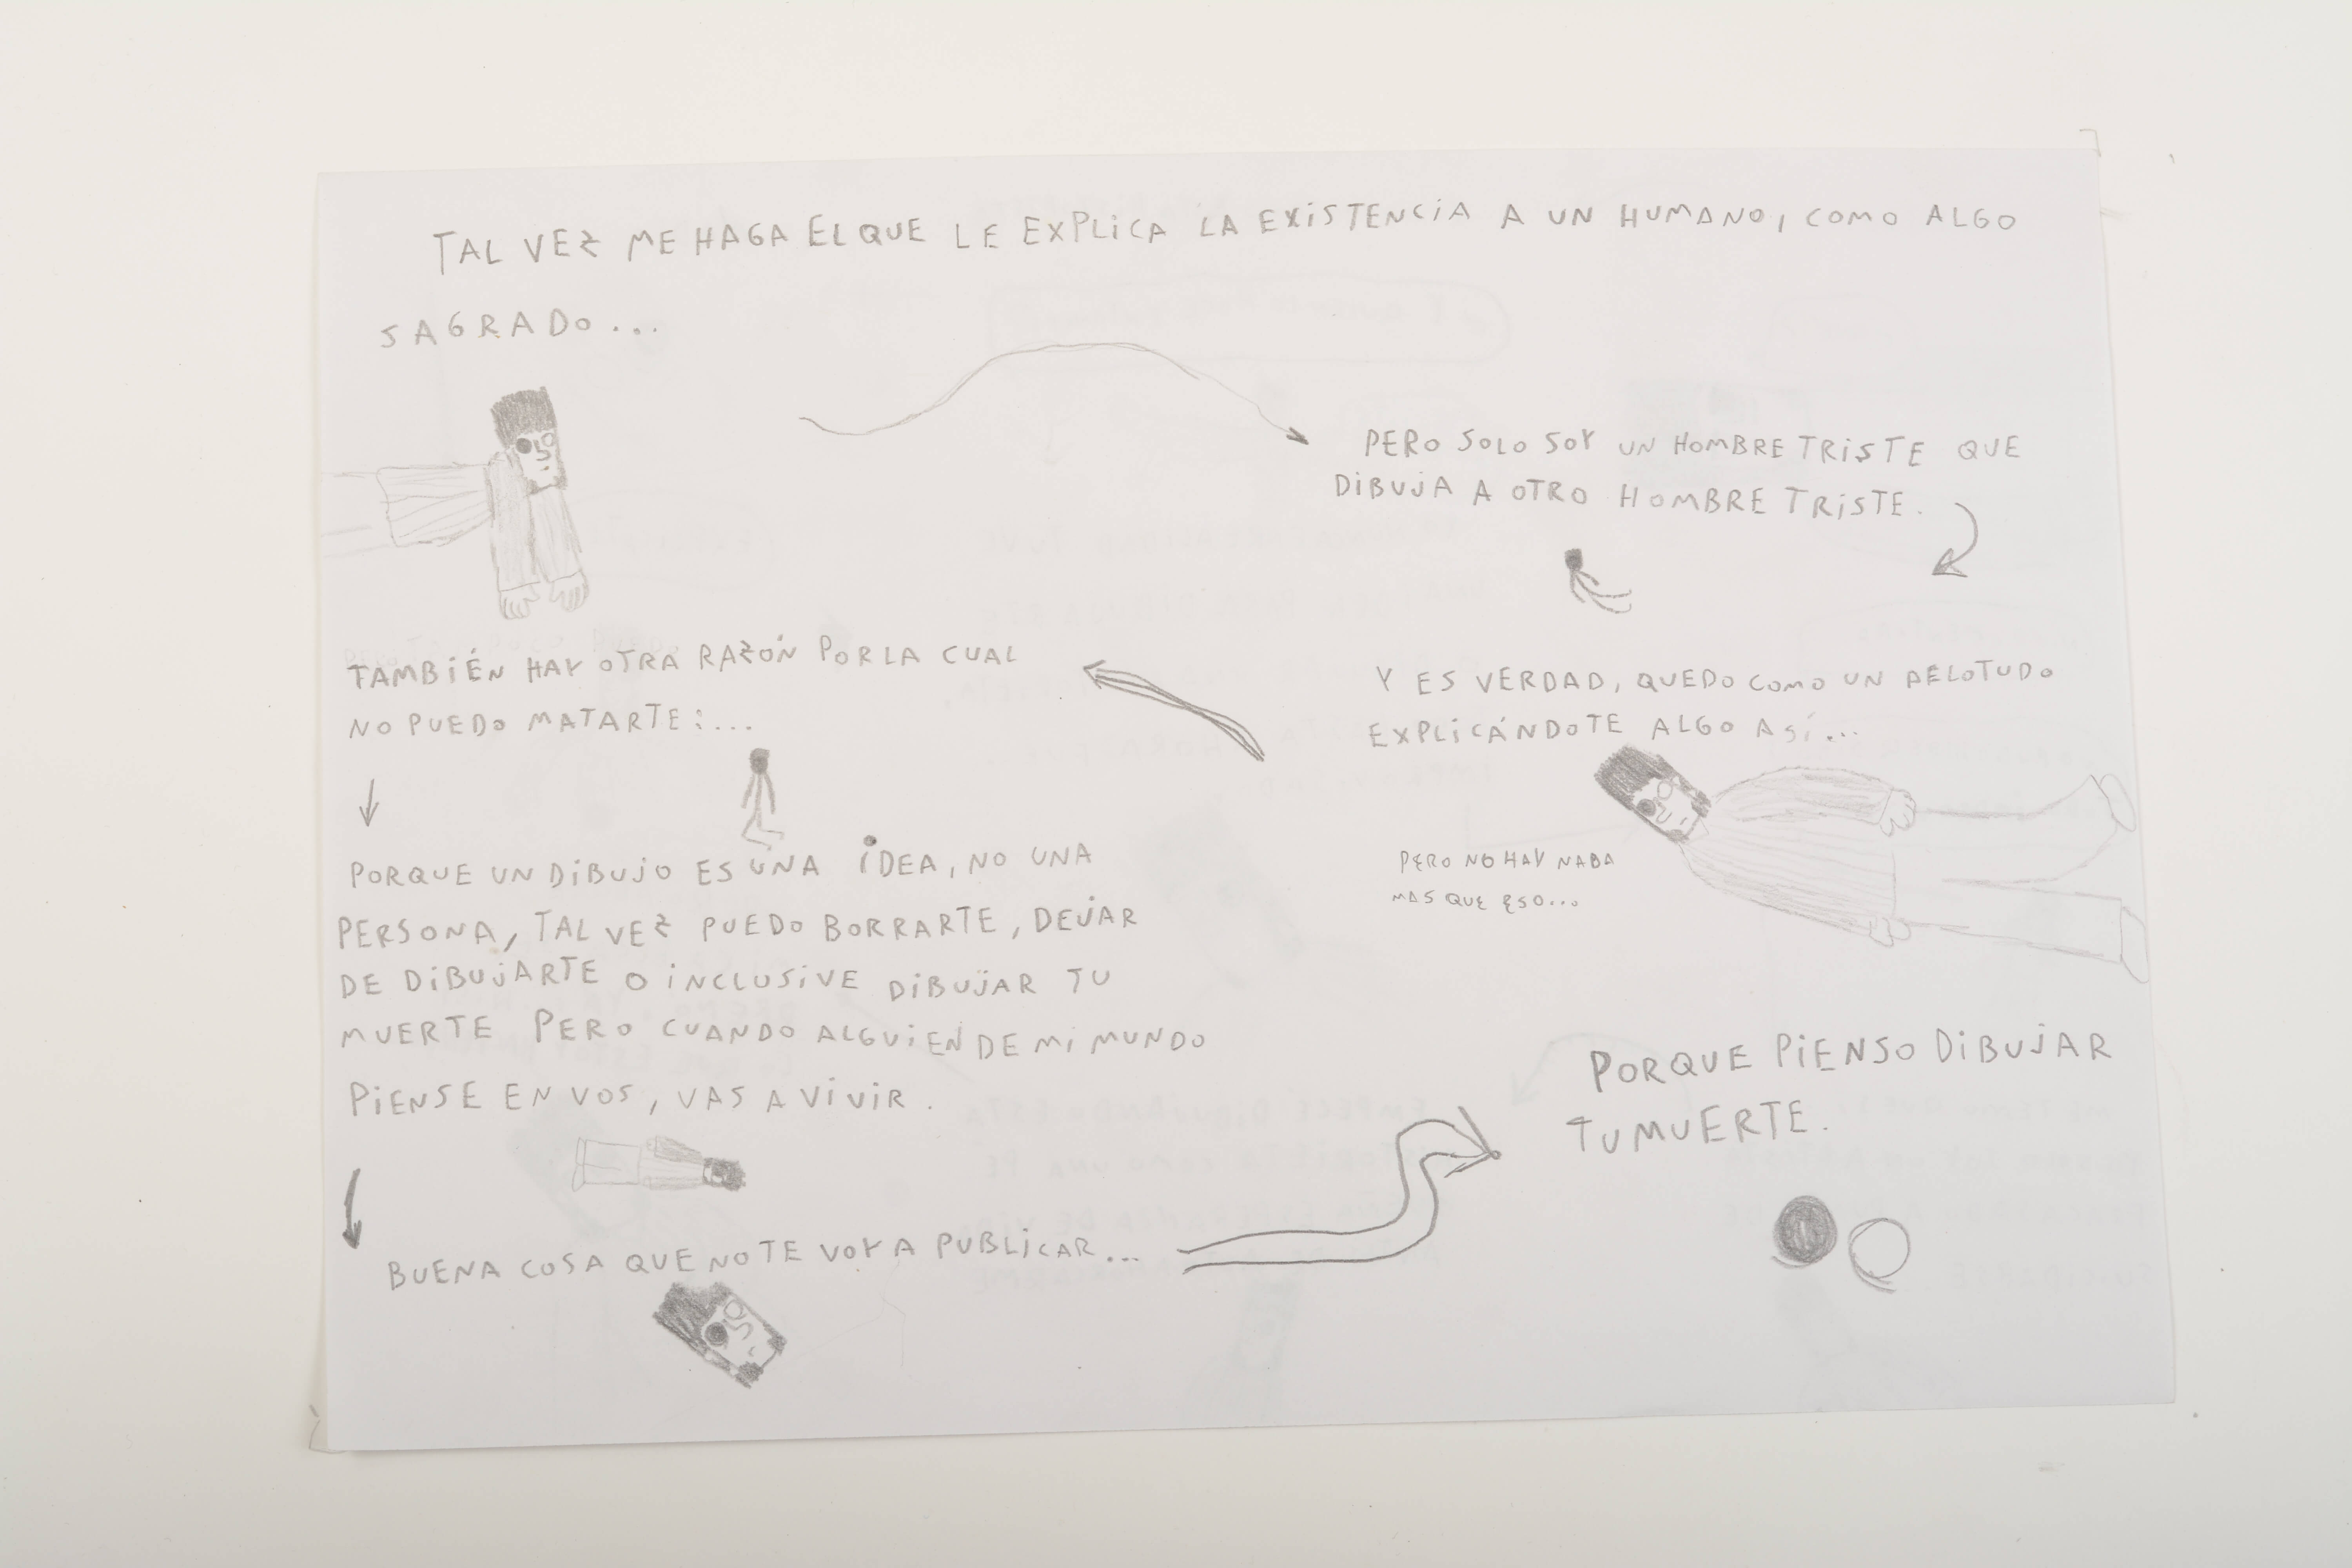 TAL VEZ ME HAGA EL QUE LE EXPLICA LA EXISTENCIA A UN HUMANO, COMO ALGO
SAGRADO...
PERO SOLO SOY UN HOMBRE TRISTE QUE
DIBUJA A OTRO HOMBRE TRISTE.
Y ES VERDAD, QUEDO COMO UN PELOTUDO
EXPLICÁNDOTE ALGO ASÍ...
PERO NO HAY NADA
MAS QUE ESO...
TAMBIÉN HAY OTRA RAZÓN POR LA CUAL
NO PUEDO MATARTE:...
PORQUE UN DIBUJO ES UNA IDEA, NO UNA
PERSONA, TAL VEZ PUEDO BORRARTE, DEJAR
DE DIBUJARTE O INCLUSIVE DIBUJAR TU
MUERTE PERO CUANDO ALGUIEN DE MI MUNDO
PIENSE EN VOS, VAS A VIVIR.
BUENA COSA QUE NO TE VOY A PUBLICAR...
PORQUE PIENSO DIBUJAR
TU MUERTE.